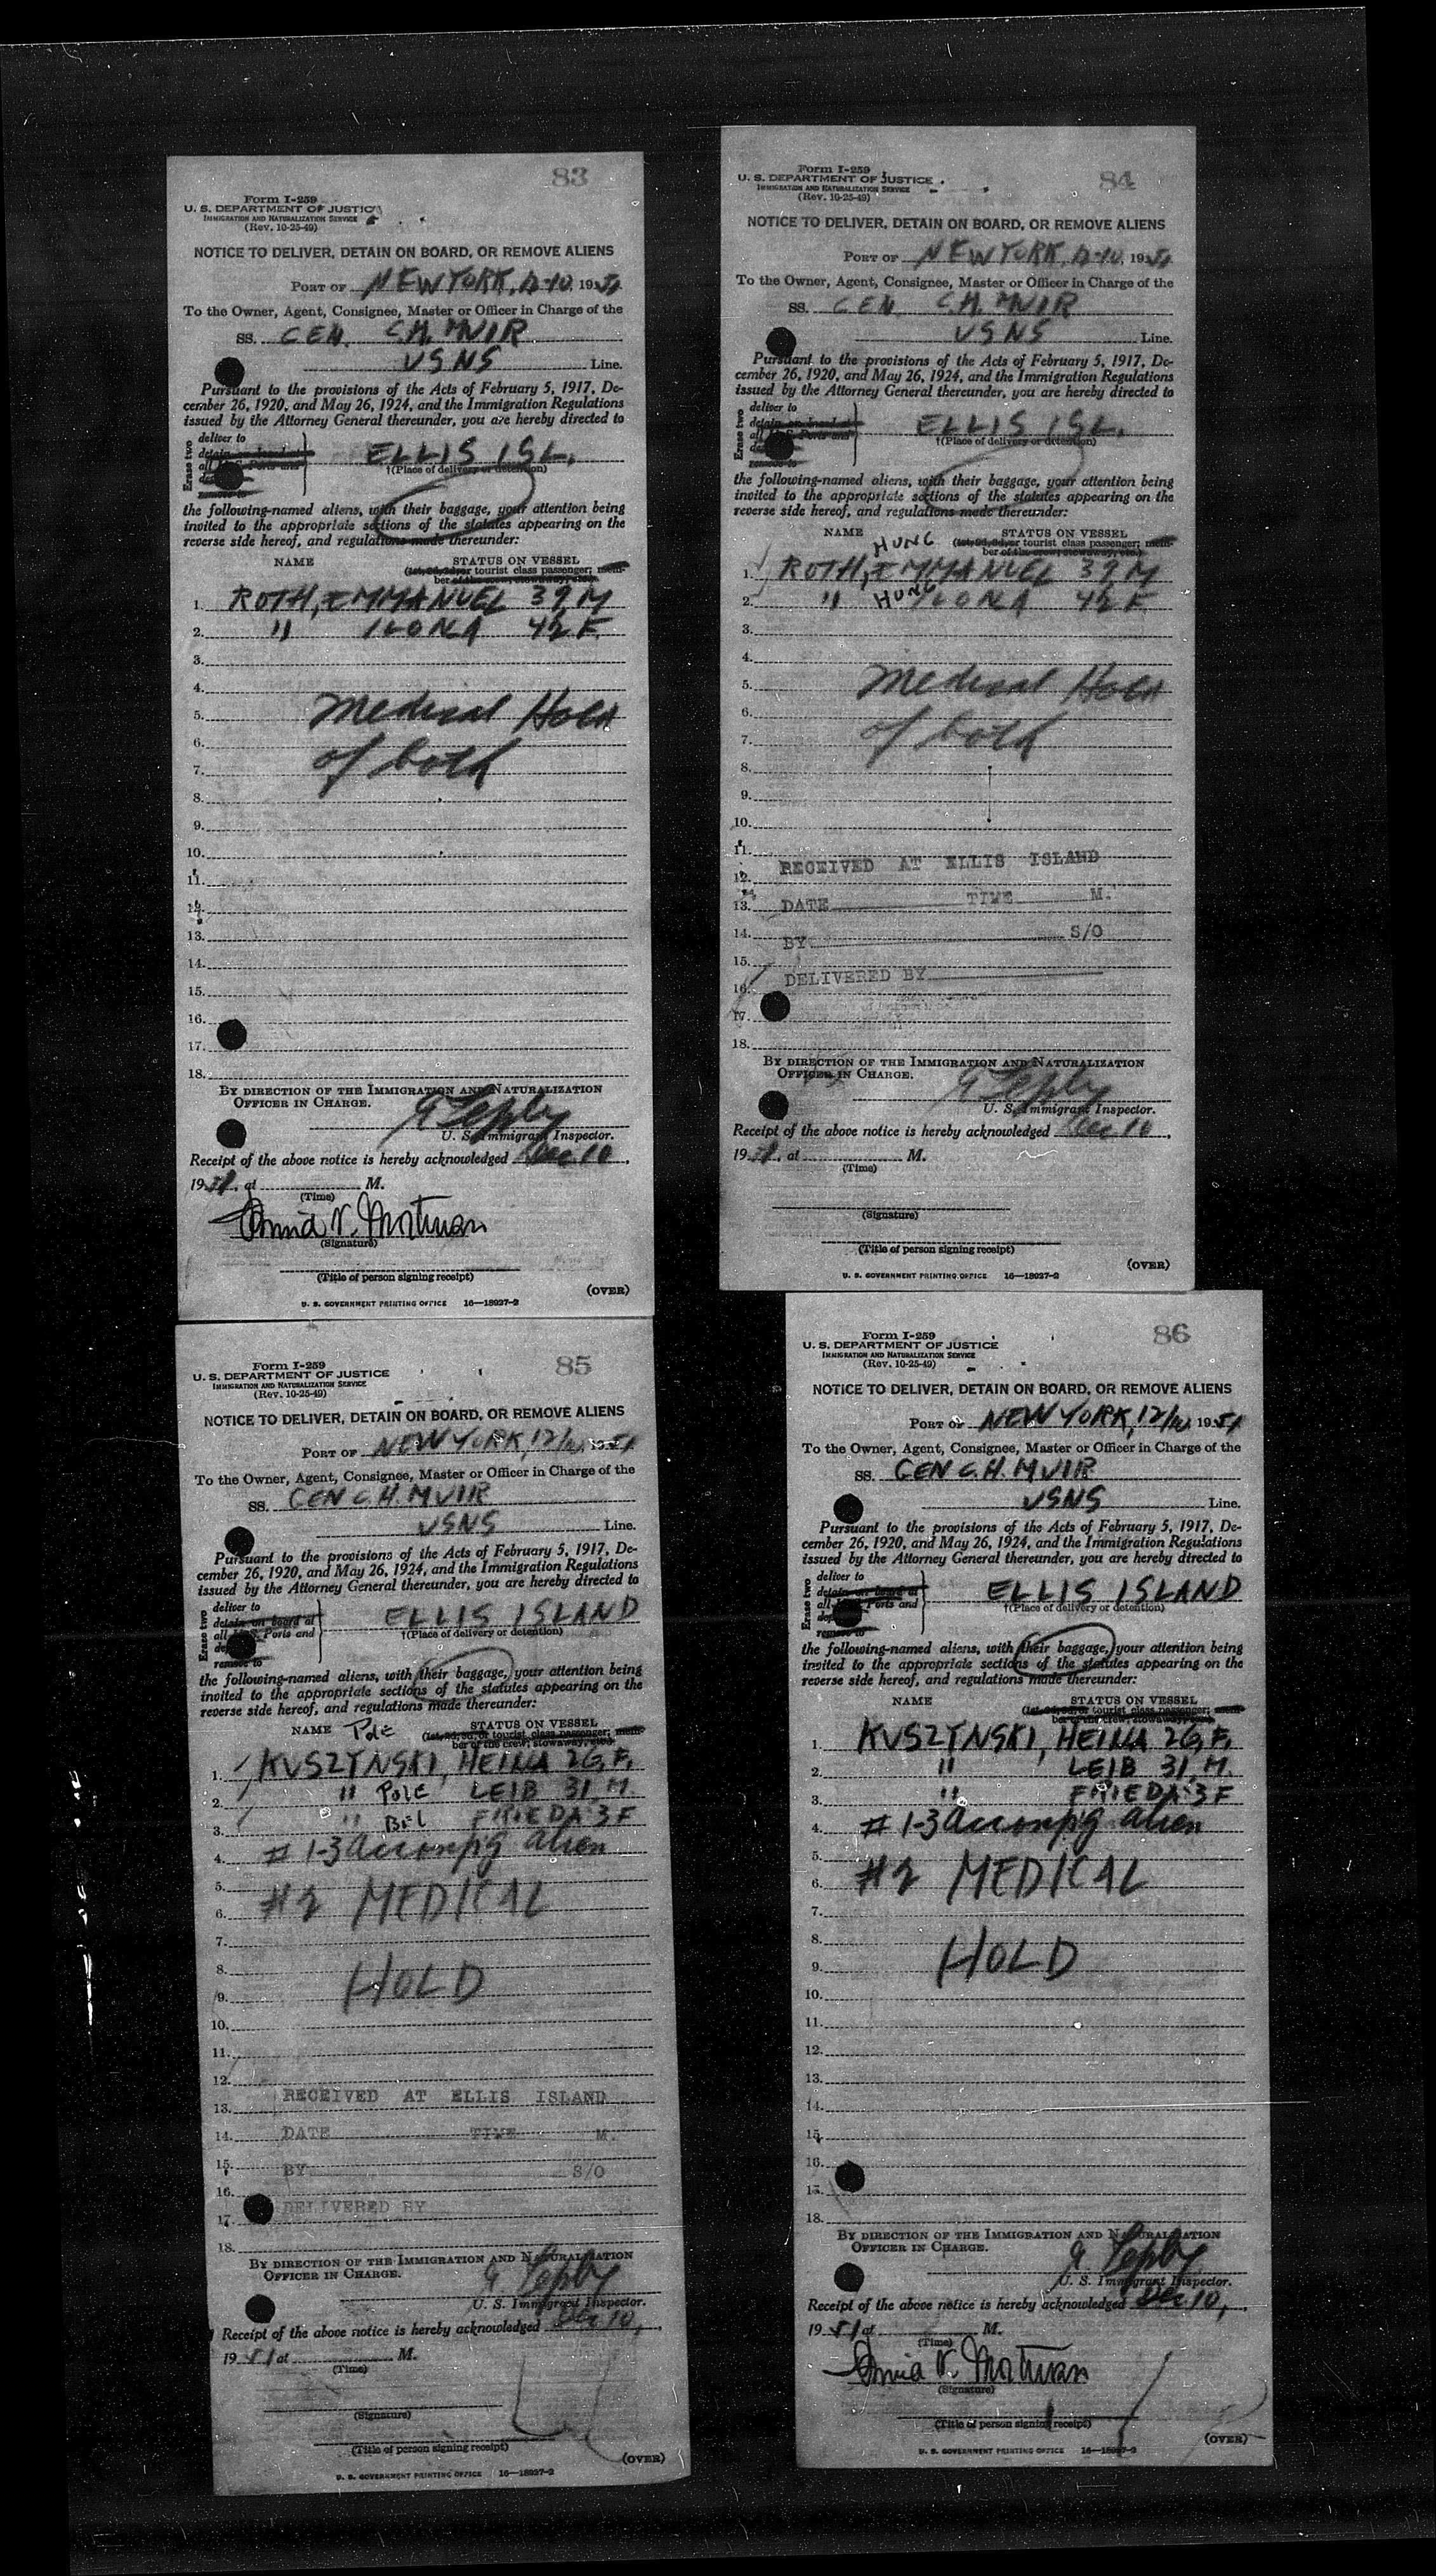 83
Form I-259
U. S. DEPARTMENT OF JUSTICE
IMMIGRATION AND NATURALIZATION SERVICE
(Rev. 10-25-49)
NOTICE TO DELIVER, DETAIN ON BOARD, OR REMOVE ALIENS
PORT OF NEW YORK, 12-10, 1951
To the Owner, Agent, Consignee, Master or Officer in Charge of the
SS. GEN. C.H. MUIR
USNS Line.
Pursuant to the provisions of the Acts of February 5, 1917, De-
cember 26, 1920, and May 26, 1924, and the Immigration Regulations
issued by the Attorney General thereunder, you are hereby directed to
Erase two
deliver to
detain on board at
all U. S. Ports and
remove to
ELLIS ISL.
†(Place of delivery or detention)
the following-named aliens, with their baggage, your attention being
invited to the appropriate sections of the statutes appearing on the
reverse side hereof, and regulations made thereunder:
NAME STATUS ON VESSEL
(1st, 2d, 3d, or tourist class passenger; mem-
ber of the crew; stowaway, etc.)
1. ROTH, EMMANUEL 39 M
2. " ILONA 42 F.
3.
4.
5. Medical Hold
6.
7. of both
8.
9.
10.
11.
12.
13.
14.
15.
16.
17.
18.
BY DIRECTION OF THE IMMIGRATION AND NATURALIZATION
OFFICER IN CHARGE.
U. S. Immigrant Inspector.
Receipt of the above notice is hereby acknowledged Dec 10,
1951, at M.
(Time)
(Signature)
(Title of person signing receipt)
(OVER)
U. S. GOVERNMENT PRINTING OFFICE 16—18927-2
84
Form I-259
U. S. DEPARTMENT OF JUSTICE
IMMIGRATION AND NATURALIZATION SERVICE
(Rev. 10-25-49)
NOTICE TO DELIVER, DETAIN ON BOARD, OR REMOVE ALIENS
PORT OF NEW YORK, 12-10, 1951
To the Owner, Agent, Consignee, Master or Officer in Charge of the
SS. GEN. C.H. MUIR
USNS Line.
Pursuant to the provisions of the Acts of February 5, 1917, De-
cember 26, 1920, and May 26, 1924, and the Immigration Regulations
issued by the Attorney General thereunder, you are hereby directed to
Erase two
deliver to
detain on board at
all U. S. Ports and
remove to
ELLIS ISL.
†(Place of delivery or detention)
the following-named aliens, with their baggage, your attention being
invited to the appropriate sections of the statutes appearing on the
reverse side hereof, and regulations made thereunder:
NAME STATUS ON VESSEL
HUNG (1st, 2d, 3d, or tourist class passenger; mem-
ber of the crew; stowaway, etc.)
1. ROTH, EMMANUEL 39 M
2. " HUNG ILONA 42 F
3.
4.
5. Medical Hold
6.
7. of both
8.
9.
10.
11.
RECEIVED AT ELLIS ISLAND
12.
13. DATE TIME M.
14. BY S/O
15.
DELIVERED BY
16.
17.
18.
BY DIRECTION OF THE IMMIGRATION AND NATURALIZATION
OFFICER IN CHARGE.
U. S. Immigrant Inspector.
Receipt of the above notice is hereby acknowledged Dec 10,
1951, at M.
(Time)
(Signature)
(Title of person signing receipt)
(OVER)
U. S. GOVERNMENT PRINTING OFFICE 16—18927-2
85
Form I-259
U. S. DEPARTMENT OF JUSTICE
IMMIGRATION AND NATURALIZATION SERVICE
(Rev. 10-25-49)
NOTICE TO DELIVER, DETAIN ON BOARD, OR REMOVE ALIENS
PORT OF NEW YORK, 12/10, 1951
To the Owner, Agent, Consignee, Master or Officer in Charge of the
SS. GEN C. H. MUIR
USNS Line.
Pursuant to the provisions of the Acts of February 5, 1917, De-
cember 26, 1920, and May 26, 1924, and the Immigration Regulations
issued by the Attorney General thereunder, you are hereby directed to
Erase two
deliver to
detain on board at
all U. S. Ports and
remove to
ELLIS ISLAND
†(Place of delivery or detention)
the following-named aliens, with their baggage, your attention being
invited to the appropriate sections of the statutes appearing on the
reverse side hereof, and regulations made thereunder:
NAME Pole STATUS ON VESSEL
(1st, 2d, 3d, or tourist class passenger; mem-
ber of the crew; stowaway, etc.)
1. KUSZYNSKI, HEINA 26, F.
2. " Pole LEIB 31, M.
3. " Bel FRIEDA 3 F
4. # 1-3 accompg alien
5.
6. #2 MEDICAL
7.
8.
9. HOLD
10.
11.
12.
RECEIVED AT ELLIS ISLAND
13.
14. DATE TIME M.
15. BY S/O
16.
DELIVERED BY
17.
18.
BY DIRECTION OF THE IMMIGRATION AND NATURALIZATION
OFFICER IN CHARGE.
U. S. Immigrant Inspector.
Receipt of the above notice is hereby acknowledged Dec 10,
1951 at M.
(Time)
(Signature)
(Title of person signing receipt)
(OVER)
U. S. GOVERNMENT PRINTING OFFICE 16—18927-2
86
Form I-259
U. S. DEPARTMENT OF JUSTICE
IMMIGRATION AND NATURALIZATION SERVICE
(Rev. 10-25-49)
NOTICE TO DELIVER, DETAIN ON BOARD, OR REMOVE ALIENS
PORT OF NEW YORK, 12/10, 1951
To the Owner, Agent, Consignee, Master or Officer in Charge of the
SS. GEN C. H. MUIR
USNS Line.
Pursuant to the provisions of the Acts of February 5, 1917, De-
cember 26, 1920, and May 26, 1924, and the Immigration Regulations
issued by the Attorney General thereunder, you are hereby directed to
Erase two
deliver to
detain on board at
all U. S. Ports and
remove to
ELLIS ISLAND
†(Place of delivery or detention)
the following-named aliens, with their baggage, your attention being
invited to the appropriate sections of the statutes appearing on the
reverse side hereof, and regulations made thereunder:
NAME STATUS ON VESSEL
(1st, 2d, 3d, or tourist class passenger; mem-
ber of the crew; stowaway, etc.)
1. KUSZYNSKI, HEINA 26, F.
2. " LEIB 31, M.
3. " FRIEDA 3 F
4. # 1-3 accompg alien
5.
6. #2 MEDICAL
7.
8.
9. HOLD
10.
11.
12.
13.
14.
15.
16.
17.
18.
BY DIRECTION OF THE IMMIGRATION AND NATURALIZATION
OFFICER IN CHARGE.
U. S. Immigrant Inspector.
Receipt of the above notice is hereby acknowledged Dec 10,
1951 at M.
(Time)
(Signature)
(Title of person signing receipt)
(OVER)
U. S. GOVERNMENT PRINTING OFFICE 16—18927-2